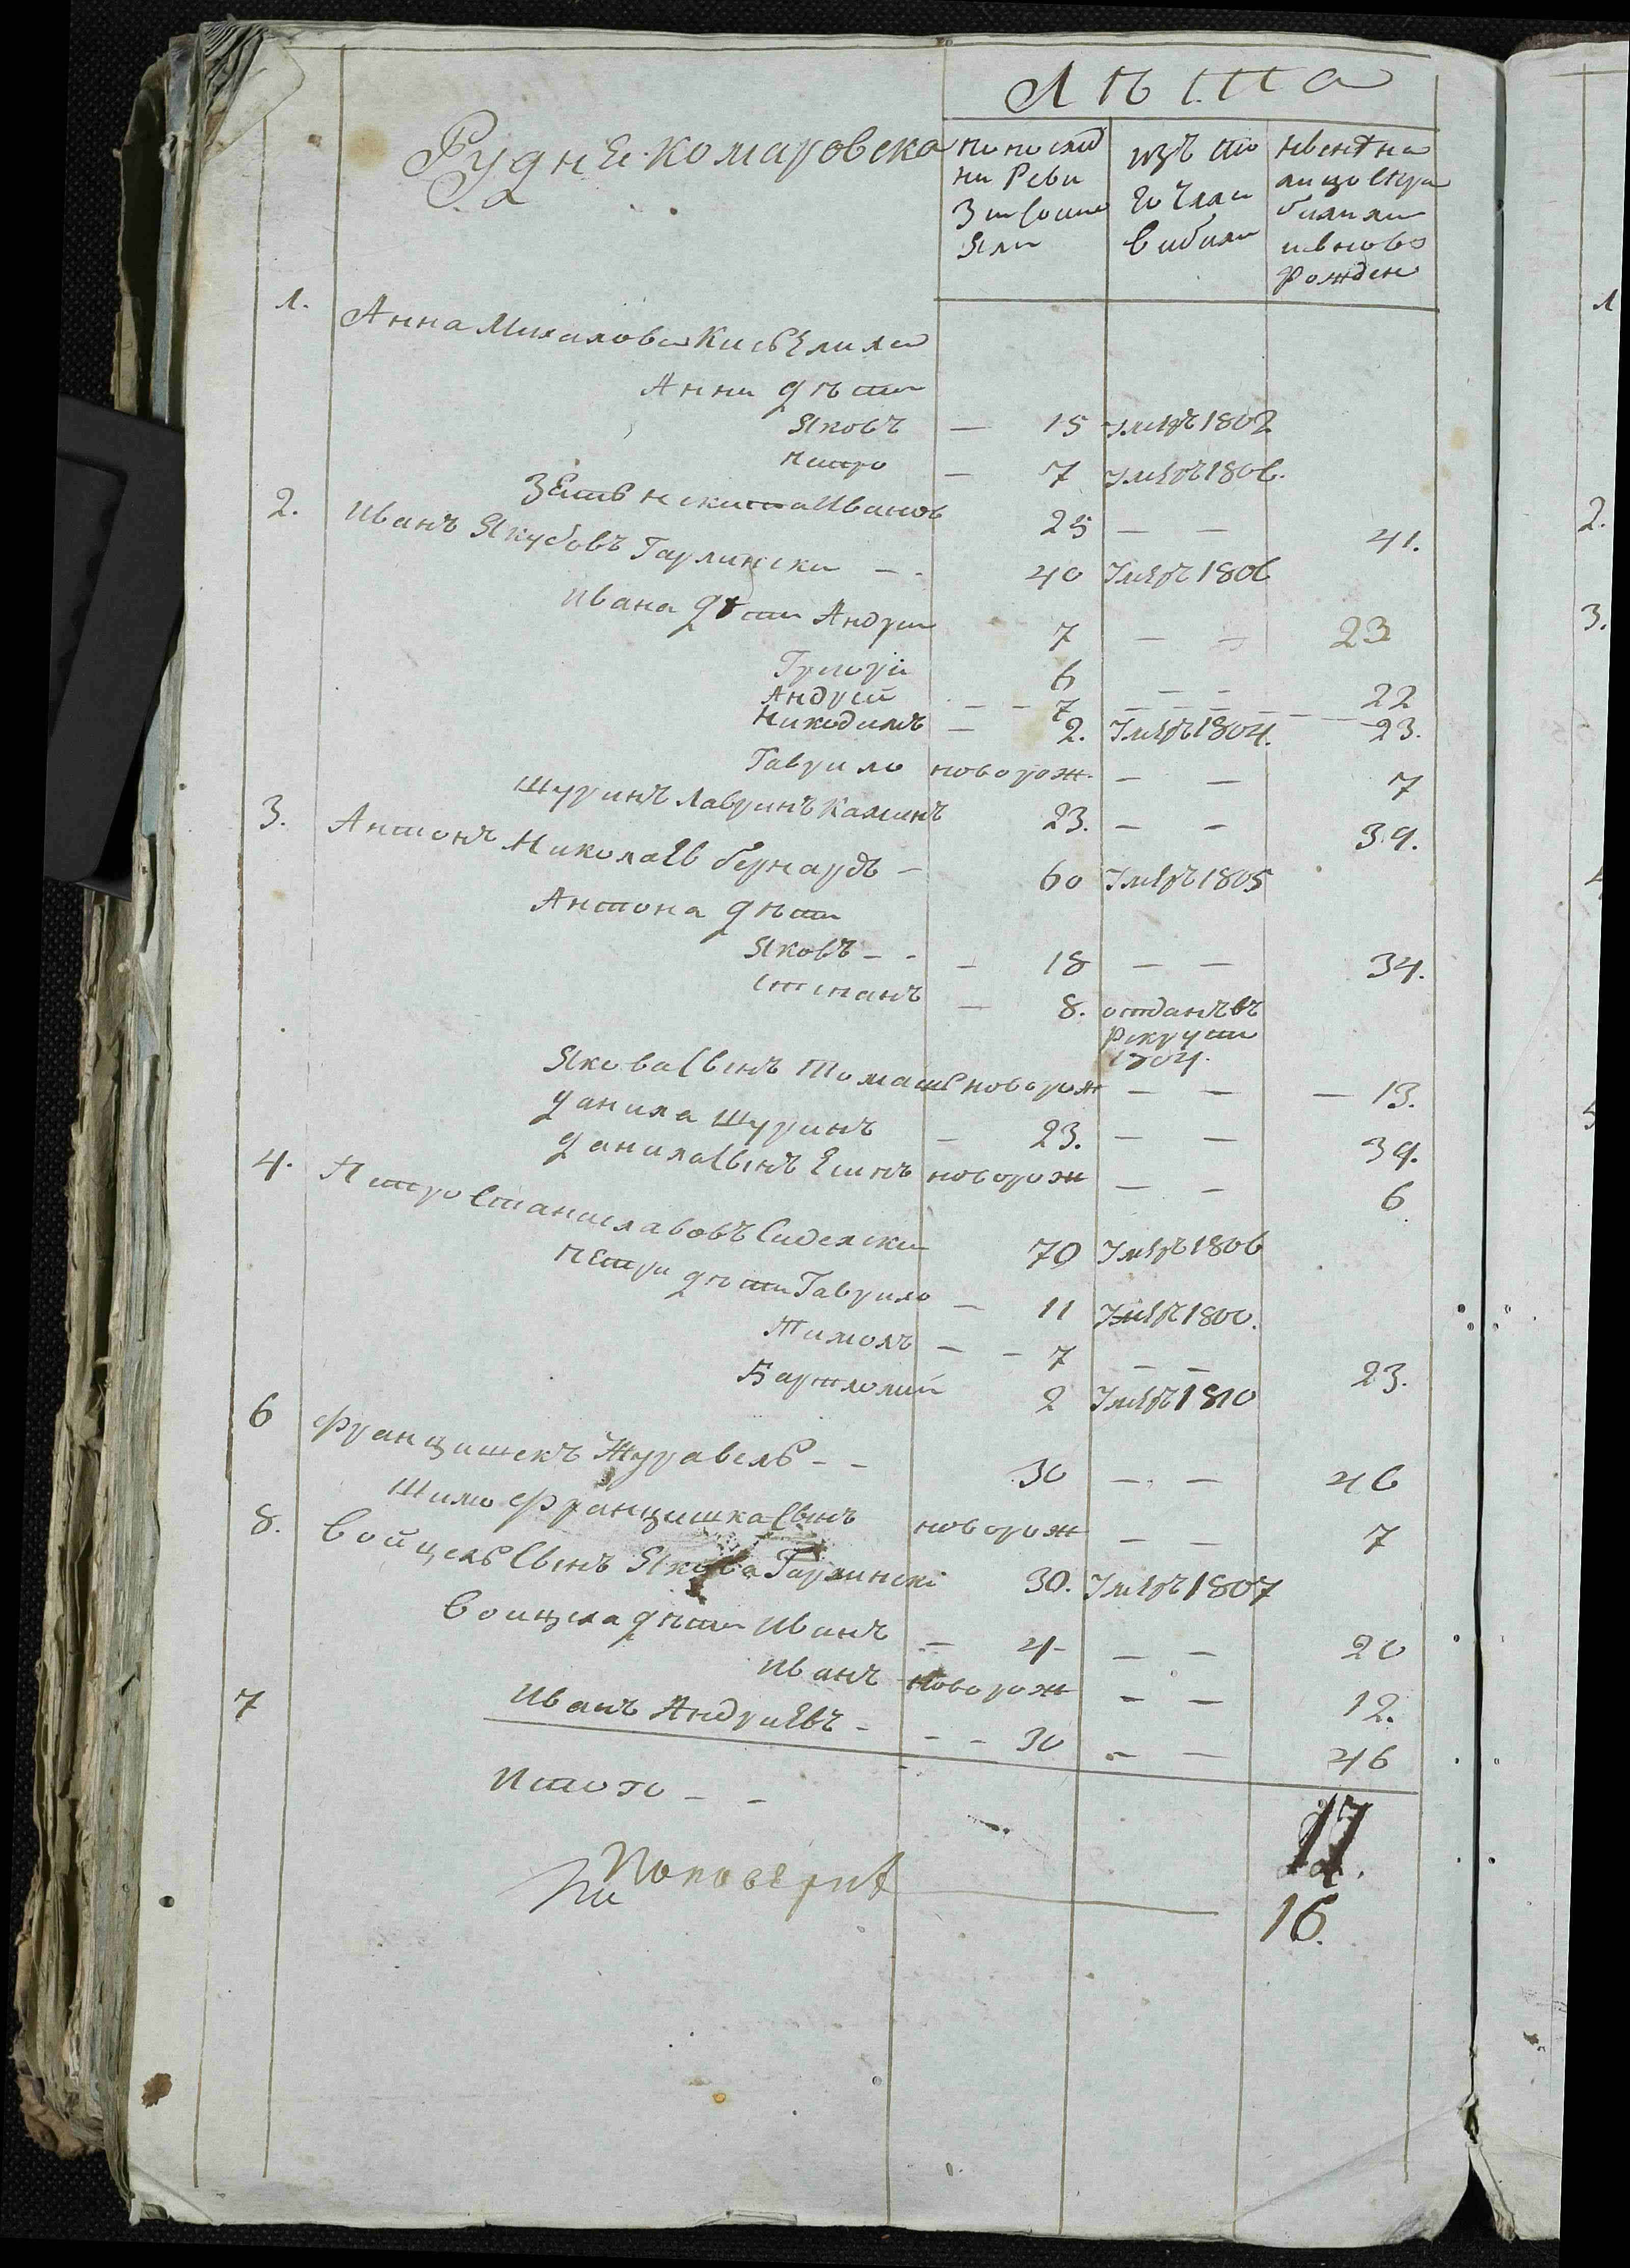 Лѣта
Рудня Комаровска
по послѣд ни Реви Зи Состо Яли
изъ то го Числа вибили
ивент на лицо Ступ били или ивново рожден
1. Анна Михалова Кисѣлила
Анни дѣти
Яковъ — 15 Умеръ 1802
Петро — 7 Умеръ 1806.
Зеть Никита Иванов 25 — — 41.
2. Иванъ Якубовъ Гарлински — - 40 Умеръ 1806
Ивана дѣти Андри 7 — — 23
Григори 6 — — 22
Андрей - - 7 — — 23.
Никодимъ — 2. Умеръ 1804.
Гаврило новорож. — — 7
Шуринъ Лавринъ Калинъ 23. — — 39.
3. Антонъ Николаев бернардъ — 60 Умеръ 1805
Антона дѣти
Яковъ - - - 18 — — 34.
Степанъ — 8. отданъ въ
рекрути
1804.
Якова Свинъ Томашъ новорож — — — 13.
Данила Шуринъ — 23. — — 39.
Данила Свинъ новорож — — 6
4. Петро Станиславовъ Сидлески 70 Умеръ 1806
Петри дѣти Гаврило — 11 Умеръ 1800.
Тимохъ — - 7 — — 23.
Бартломий 2 Умеръ 1810
6 Францишекъ Журавель - - 30 — — 46
Шимо Францишка Свинъ новорож — — 7
8. Войцехъ Свинъ Якова Гарлинскі 30. Умеръ 1807
Воицеха дѣти Иванъ — 4 — — 20
Иванъ новорож — — 12.
7 Иванъ Андриевъ - - - 30 — — 46
Итого - - 17.
По повѣркѣ 16.